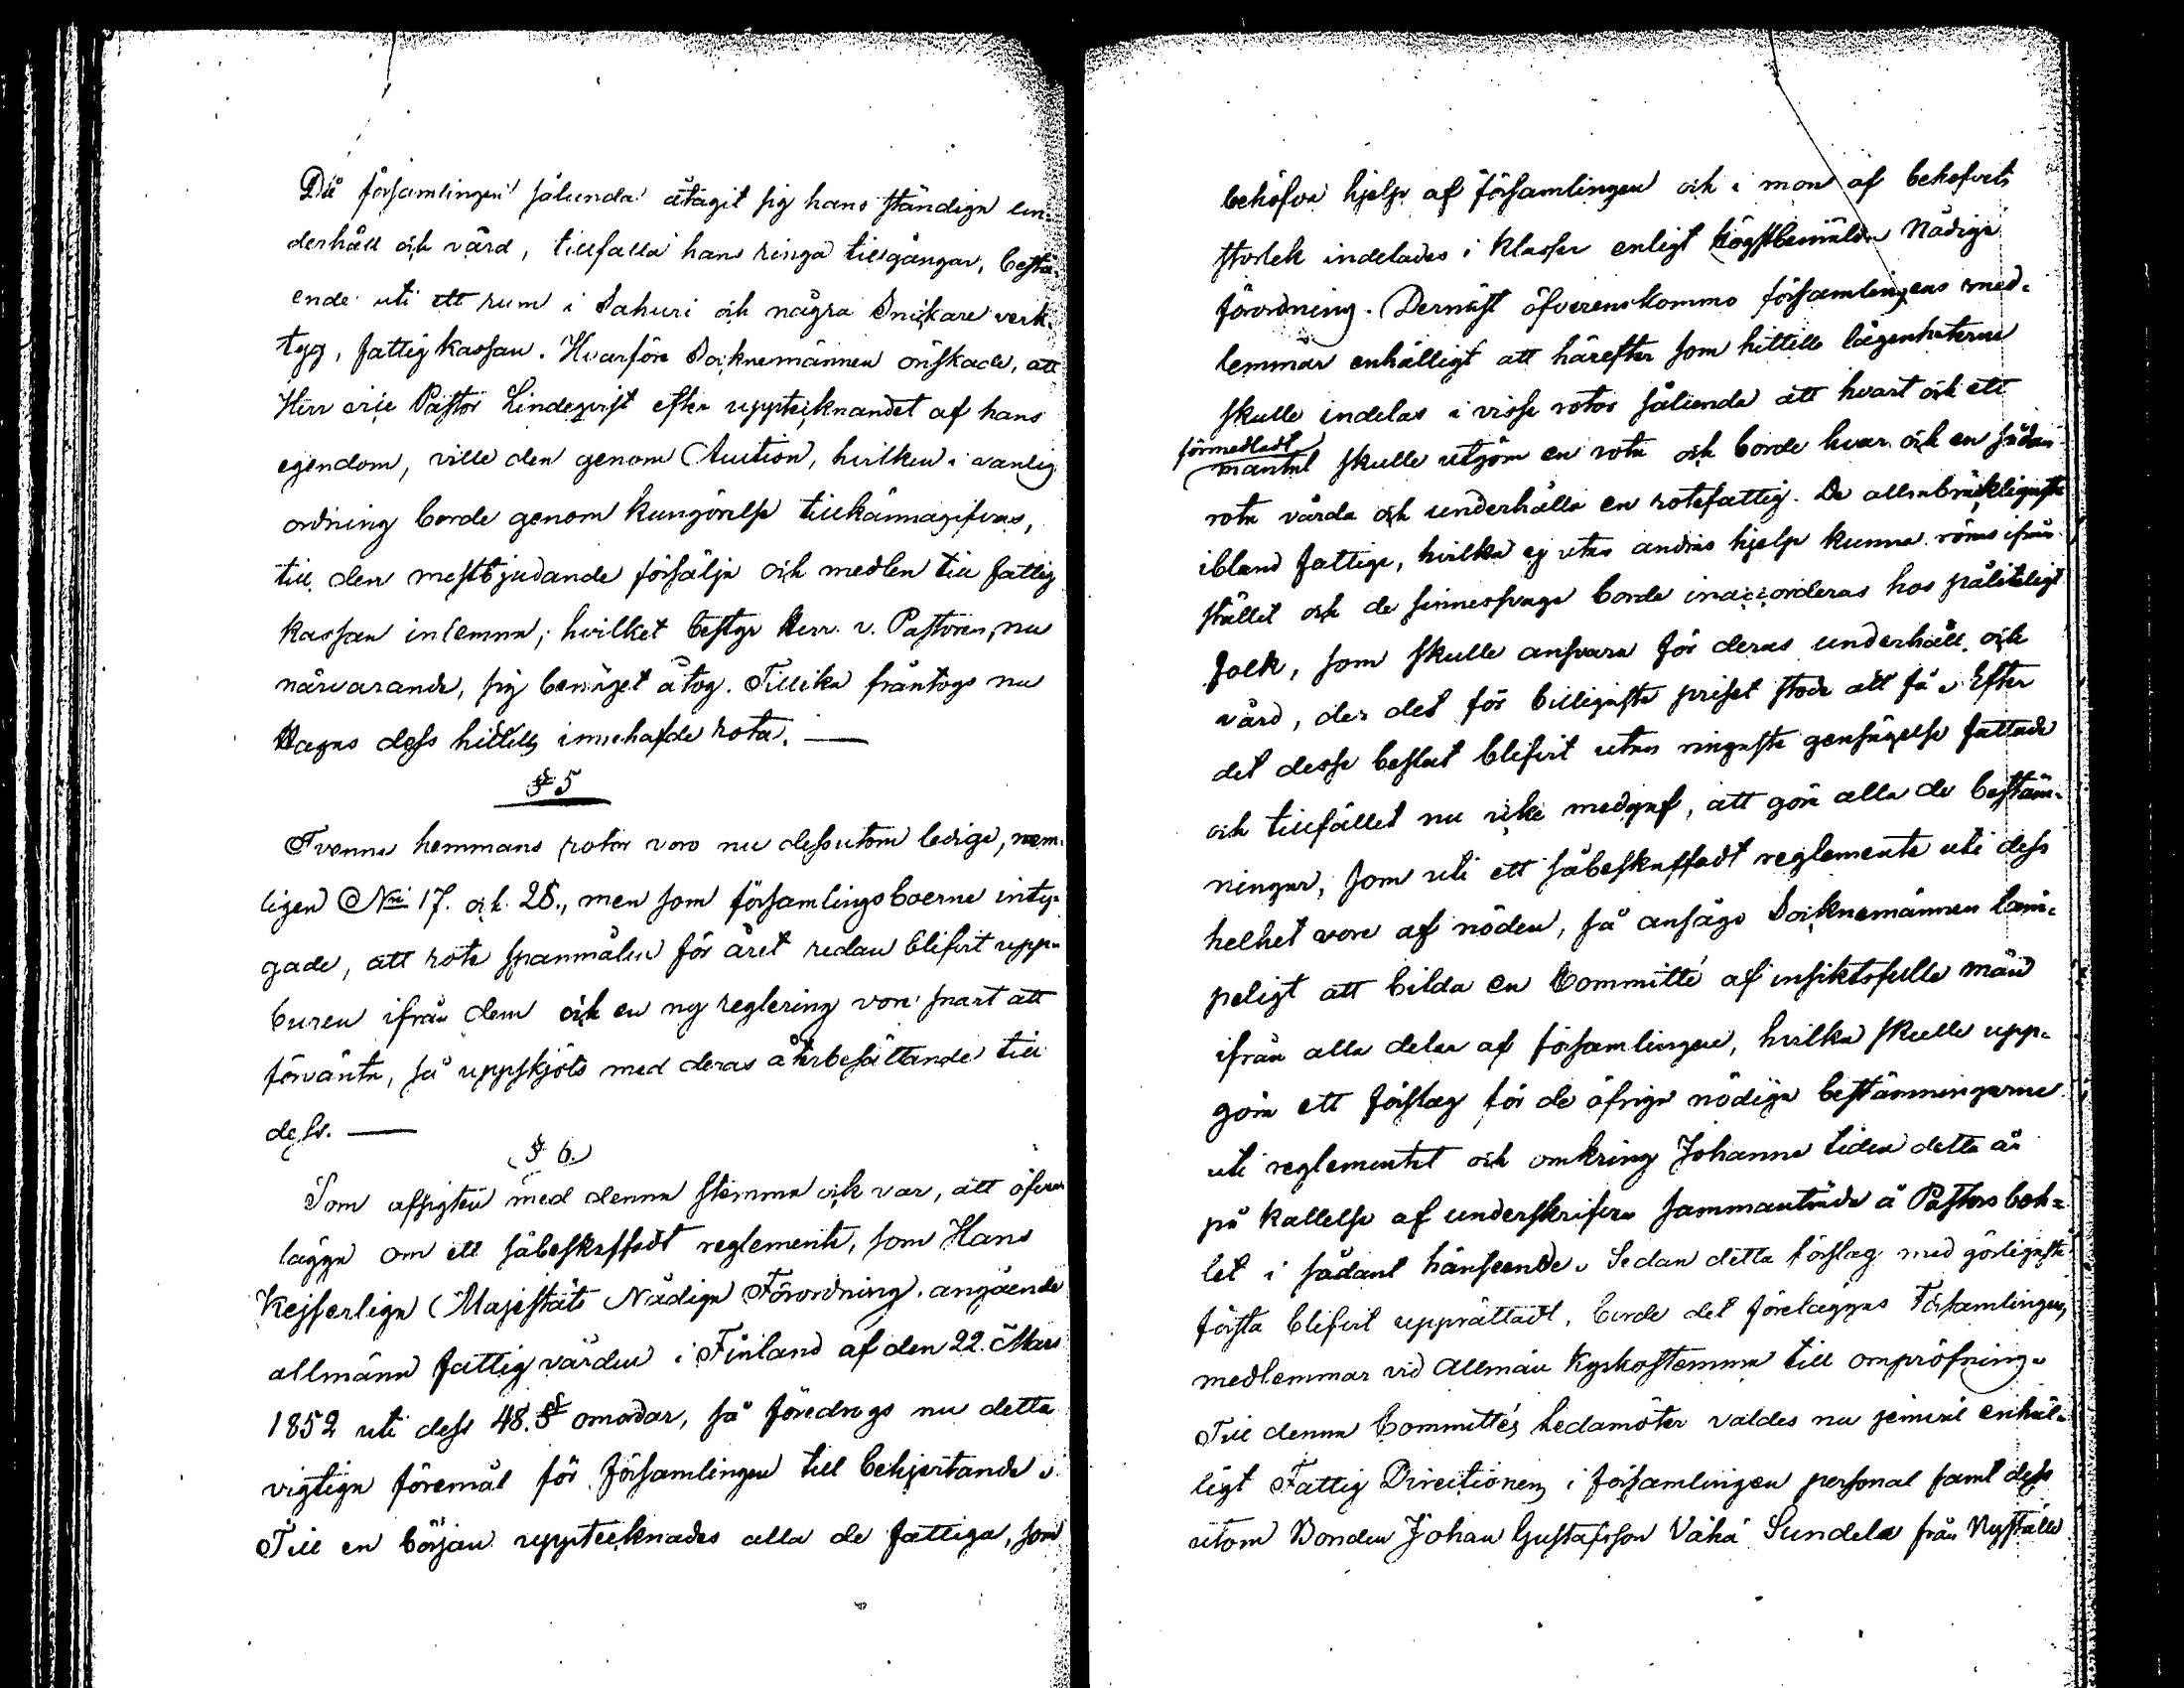 Då församlingen sålunda åtagit sig hans ständiga un-
derhåll och vård, tillfalla hans ringa tillgångar, bestå-
ende uti ett rum i Sahuri och några Snickare verk-
tyg, fattigkassan. Hvarföre Socknemännen önskade, att
Herr vice Pastor Lindeqvist efter upptecknandet af hans
egendom, ville den genom Auction, hvilken i vanlig
ordning borde genom kungörelse tillkännagifvas,
till den mestbjudande försälja och medlen till fattig
kassan inlemna; hvilket bestyr Herr v. Pastoren, nu
närvarande, sig benäget åtog. Tillika fråntogs nu
dess hittills innehafde rota. —
§ 5
Tvenne hemmans rotor voro nu dessutom ledige, nem-
ligen Nri 17. och 28., men som församlingsboerne inty-
gade, att rote spanmålen för året redan blifvit upp-
buren ifrån dem och en ny reglering vore snart att
förvänta, så uppskjöts med deras återbesättande till
dess. —
§ 6.
Som afsigten med denna stemma ock var, att öfver-
lägga om ett såbeskaffadt reglemente, som Hans
Kejserliga Majestäts Nådiga Förordning, angående
allmänna fattigvården i Finland af den 22. Mars
1852 uti dess 48. § omordar, så föredrogs nu detta
vigtiga föremål för församlingen till behjertande.
Till en början upptecknades alla de fattiga, som
behöfva hjelp af församlingen och i mon af behofvets
storlek indelades i klasser enligt högstbemälda Nådiga
förordning. Dernäst öfverenskommo församlingens med-
lemmar enhälligt att härefter som hittills lägenheterne
skulle indelas i visse rotor sålunda att hvart och ett
förmedladt
mantal skulle utgöra en rota och borde hvar och en sådan
rota vårda och underhålla en rotefattig. De allrabräckligaste
ibland fattige, hvilka ej utan andras hjelp kunna röras ifrån
stället och de sinnessvaga borde inaccorderas hos pålitligt
folk, som skulle ansvara för deras underhåll och
vård, der det för billigaste priset stode att få. Efter
det desse beslut blifvit utan ringaste gensägelse fattade
och tillfället nu icke medgaf, att göra alla de bestäm-
ningar, som uti ett såbeskaffadt reglemente uti dess
helhet vore af nöden, så ansågo Socknemännen läm-
peligt att bilda en Committé af insiktsfulle män
ifrån alla delar af församlingen, hvilka skulle upp-
göra ett förslag för de öfriga nödiga bestämningarne
uti reglementet och omkring Johanne tiden detta år
på kallelse af underskrifven sammanträda å Pastors bol-
let i sådant hänseende. Sedan detta förslag med görligaste
första blifvit upprättadt, borde det föreläggas Församlingens
medlemmar vid Allmän Kyrkostemma till ompröfning.
Till denna Committés Ledamöter valdes nu jemväl enhäl-
ligt Fattig Directionens i församlingen personal samt dess
utom Bonden Johan Gustafsson Vähä Sundela från Nyställe